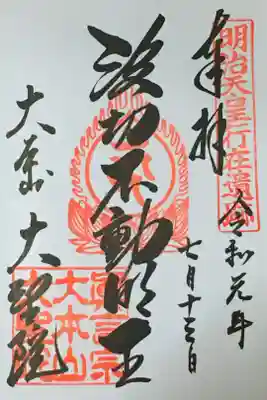 明治天皇行在遺
奉拝
令和元年
七月十三日
波切不動明王
眞言宗
大本山
大聖院
大本山 大聖院